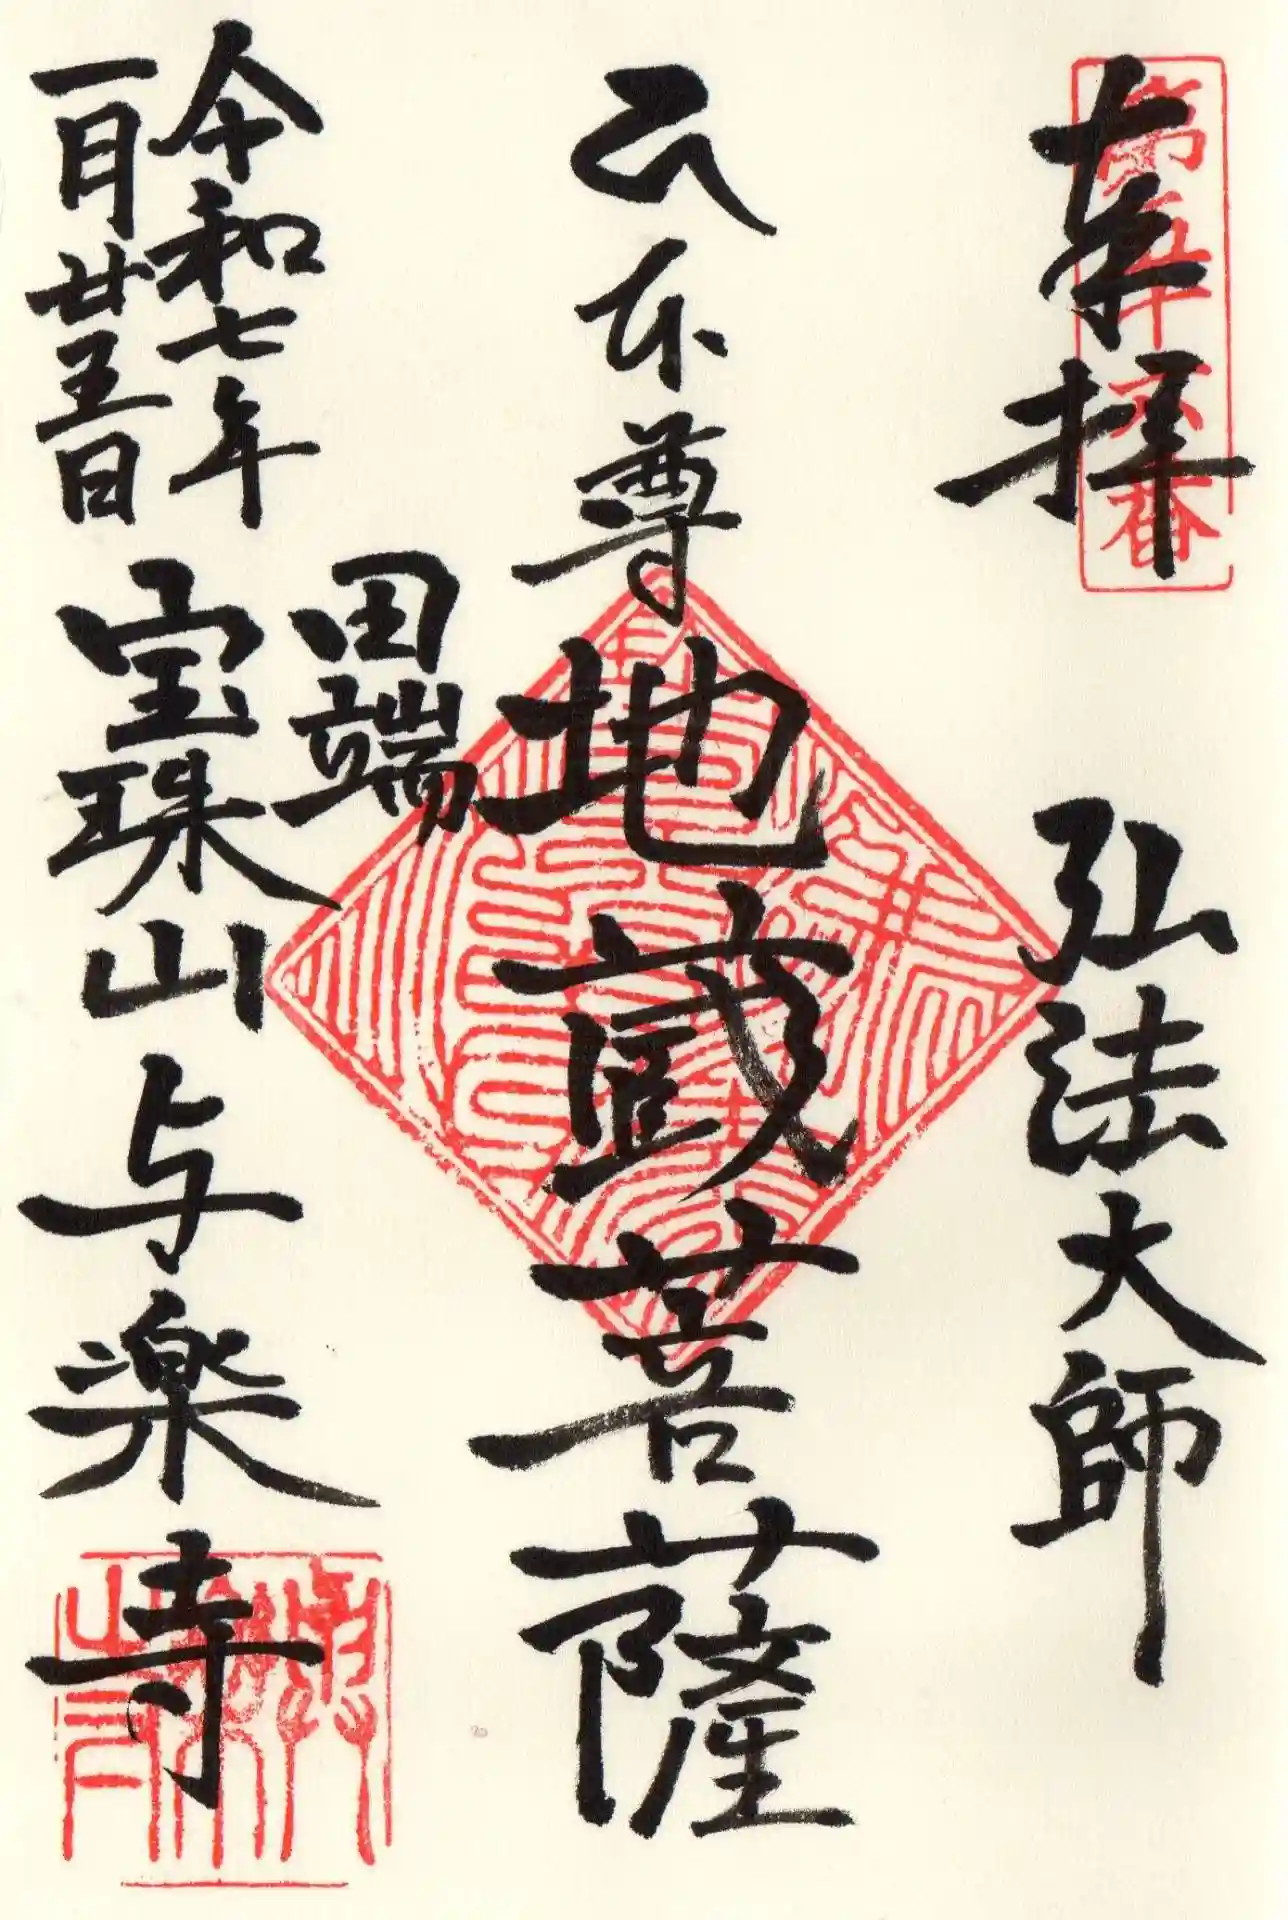 奉拝
第五十六番
弘法大師
本尊
地蔵菩薩
田端
宝珠山与楽寺
令和七年
一月廿五日